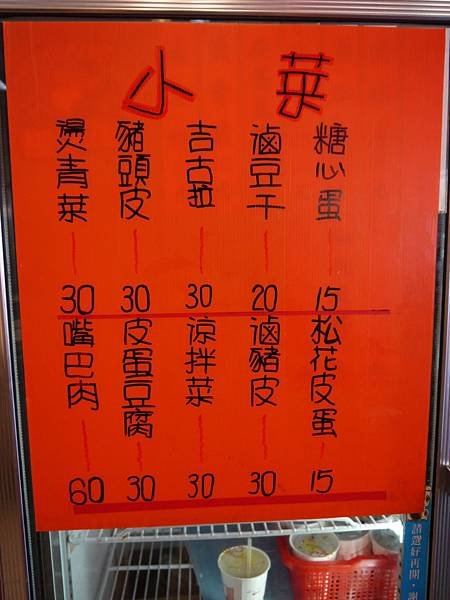 小菜
糖心蛋 15
滷豆干 20
吉古拉 30
豬頭皮 30
燙青菜 30
松花皮蛋 15
滷豬皮 30
涼拌菜 30
皮蛋豆腐 30
嘴巴肉 60
請選好再開，謝